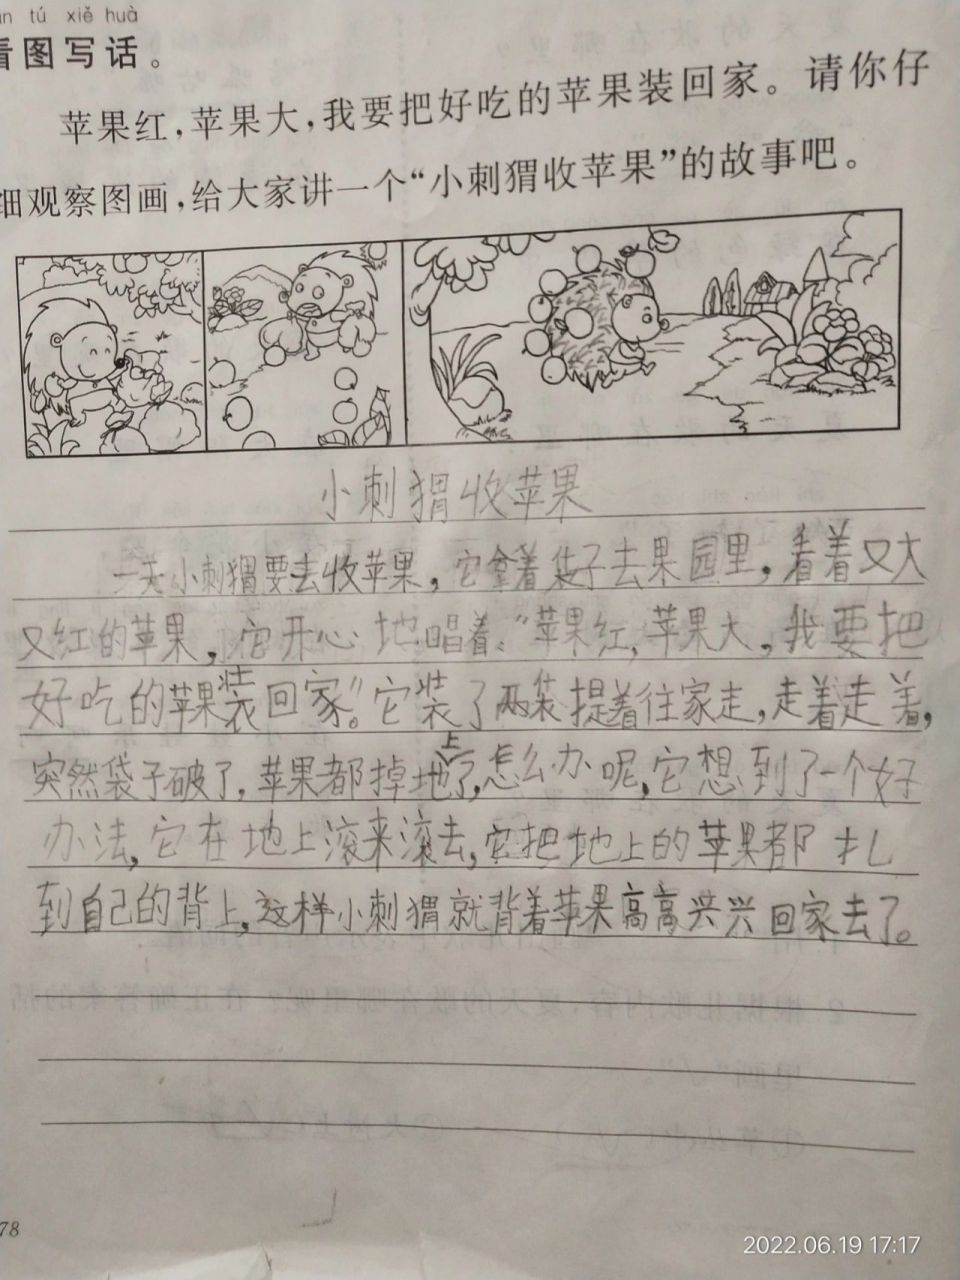 tú xiě huà
看图写话。
苹果红，苹果大，我要把好吃的苹果装回家。请你仔
细观察图画，给大家讲一个“小刺猬收苹果”的故事吧。
小刺猬收苹果
一天小刺猬要去收苹果，它拿着袋子去果园里，看着又大
又红的苹果，它开心地唱着：“苹果红，苹果大，我要把
好吃的苹果装回家。”它装了两袋提着往家走，走着走着，
突然袋子破了，苹果都掉地上了，怎么办呢，它想到了一个好
办法，它在地上滚来滚去，它把地上的苹果都扎
到自己的背上，这样小刺猬就背着苹果高高兴兴回家去了。
78
2022.06.19 17:17